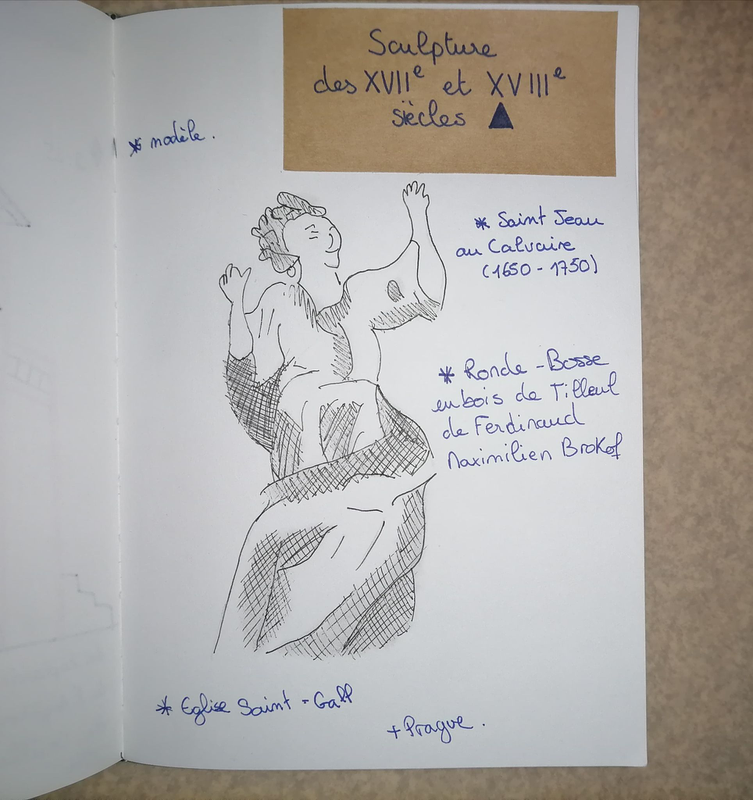 Sculpture
des XVIIe et XVIIIe
siècles
* modèle.
* Saint Jean
au Calvaire
(1650 - 1750)
* Ronde - Bosse
en bois de Tilleul
de Ferdinand
Maximilien Brokof
* Eglise Saint - Gall
+ Prague.